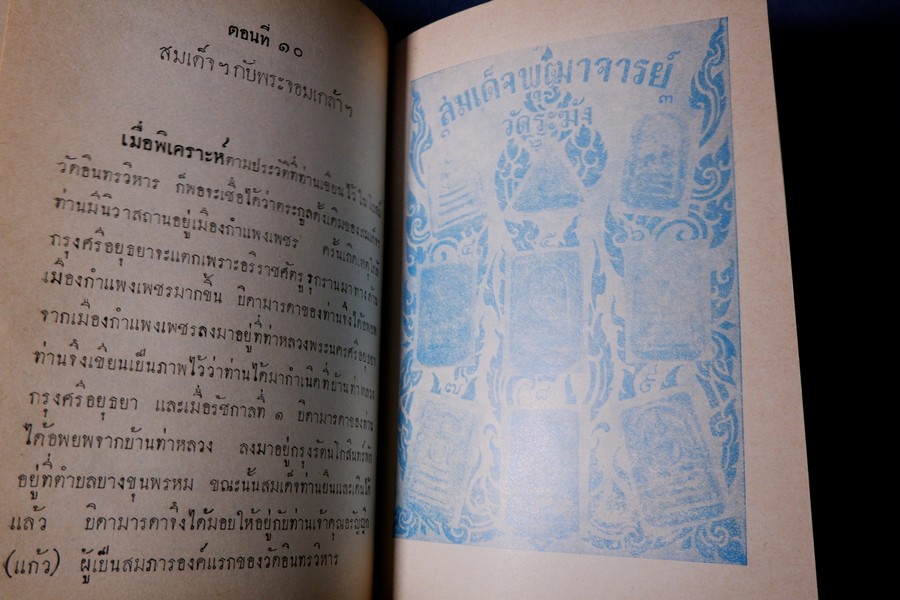 ตอนที่ ๑๐
สมเด็จฯ กับพระจอมเกล้าฯ
เมื่อพิเคราะห์ตามประวัติที่ท่านเขียนไว้ในโบสถ์
วัดอินทรวิหาร ก็พอจะเชื่อได้ว่าตระกูลดั้งเดิมของ
ท่านมีนิวาสถานอยู่เมืองกำแพงเพชร ครั้นเกิดเหตุ
กรุงศรีอยุธยาจะแตกเพราะอริราชศัตรูรุกรานมาทางด้าน
เมืองกำแพงเพชรมากขึ้น บิดามารดาของท่านจึงได้อพยพ
จากเมืองกำแพงเพชรลงมาอยู่ที่ท่าหลวงพระนครศรีอยุธยา
ท่านจึงเขียนเป็นภาพไว้ว่าท่านได้มากำเนิดที่บ้านท่าหลวง
กรุงศรีอยุธยา และเมื่อรัชกาลที่ ๑ บิดามารดาของท่าน
ได้อพยพจากบ้านท่าหลวง ลงมาอยู่กรุงรัตนโกสินทร์
อยู่ที่ตำบลบางขุนพรหม ขณะนั้นสมเด็จท่านยืนและเดินได้
แล้ว บิดามารดาจึงได้มอบให้อยู่กับท่านเจ้าคุณอรัญญิก
(แก้ว) ผู้เป็นสมภารองค์แรกของวัดอินทรวิหาร
สมเด็จพุฒาจารย์
วัดระฆัง
๓
๕
๗ ๘ ๙